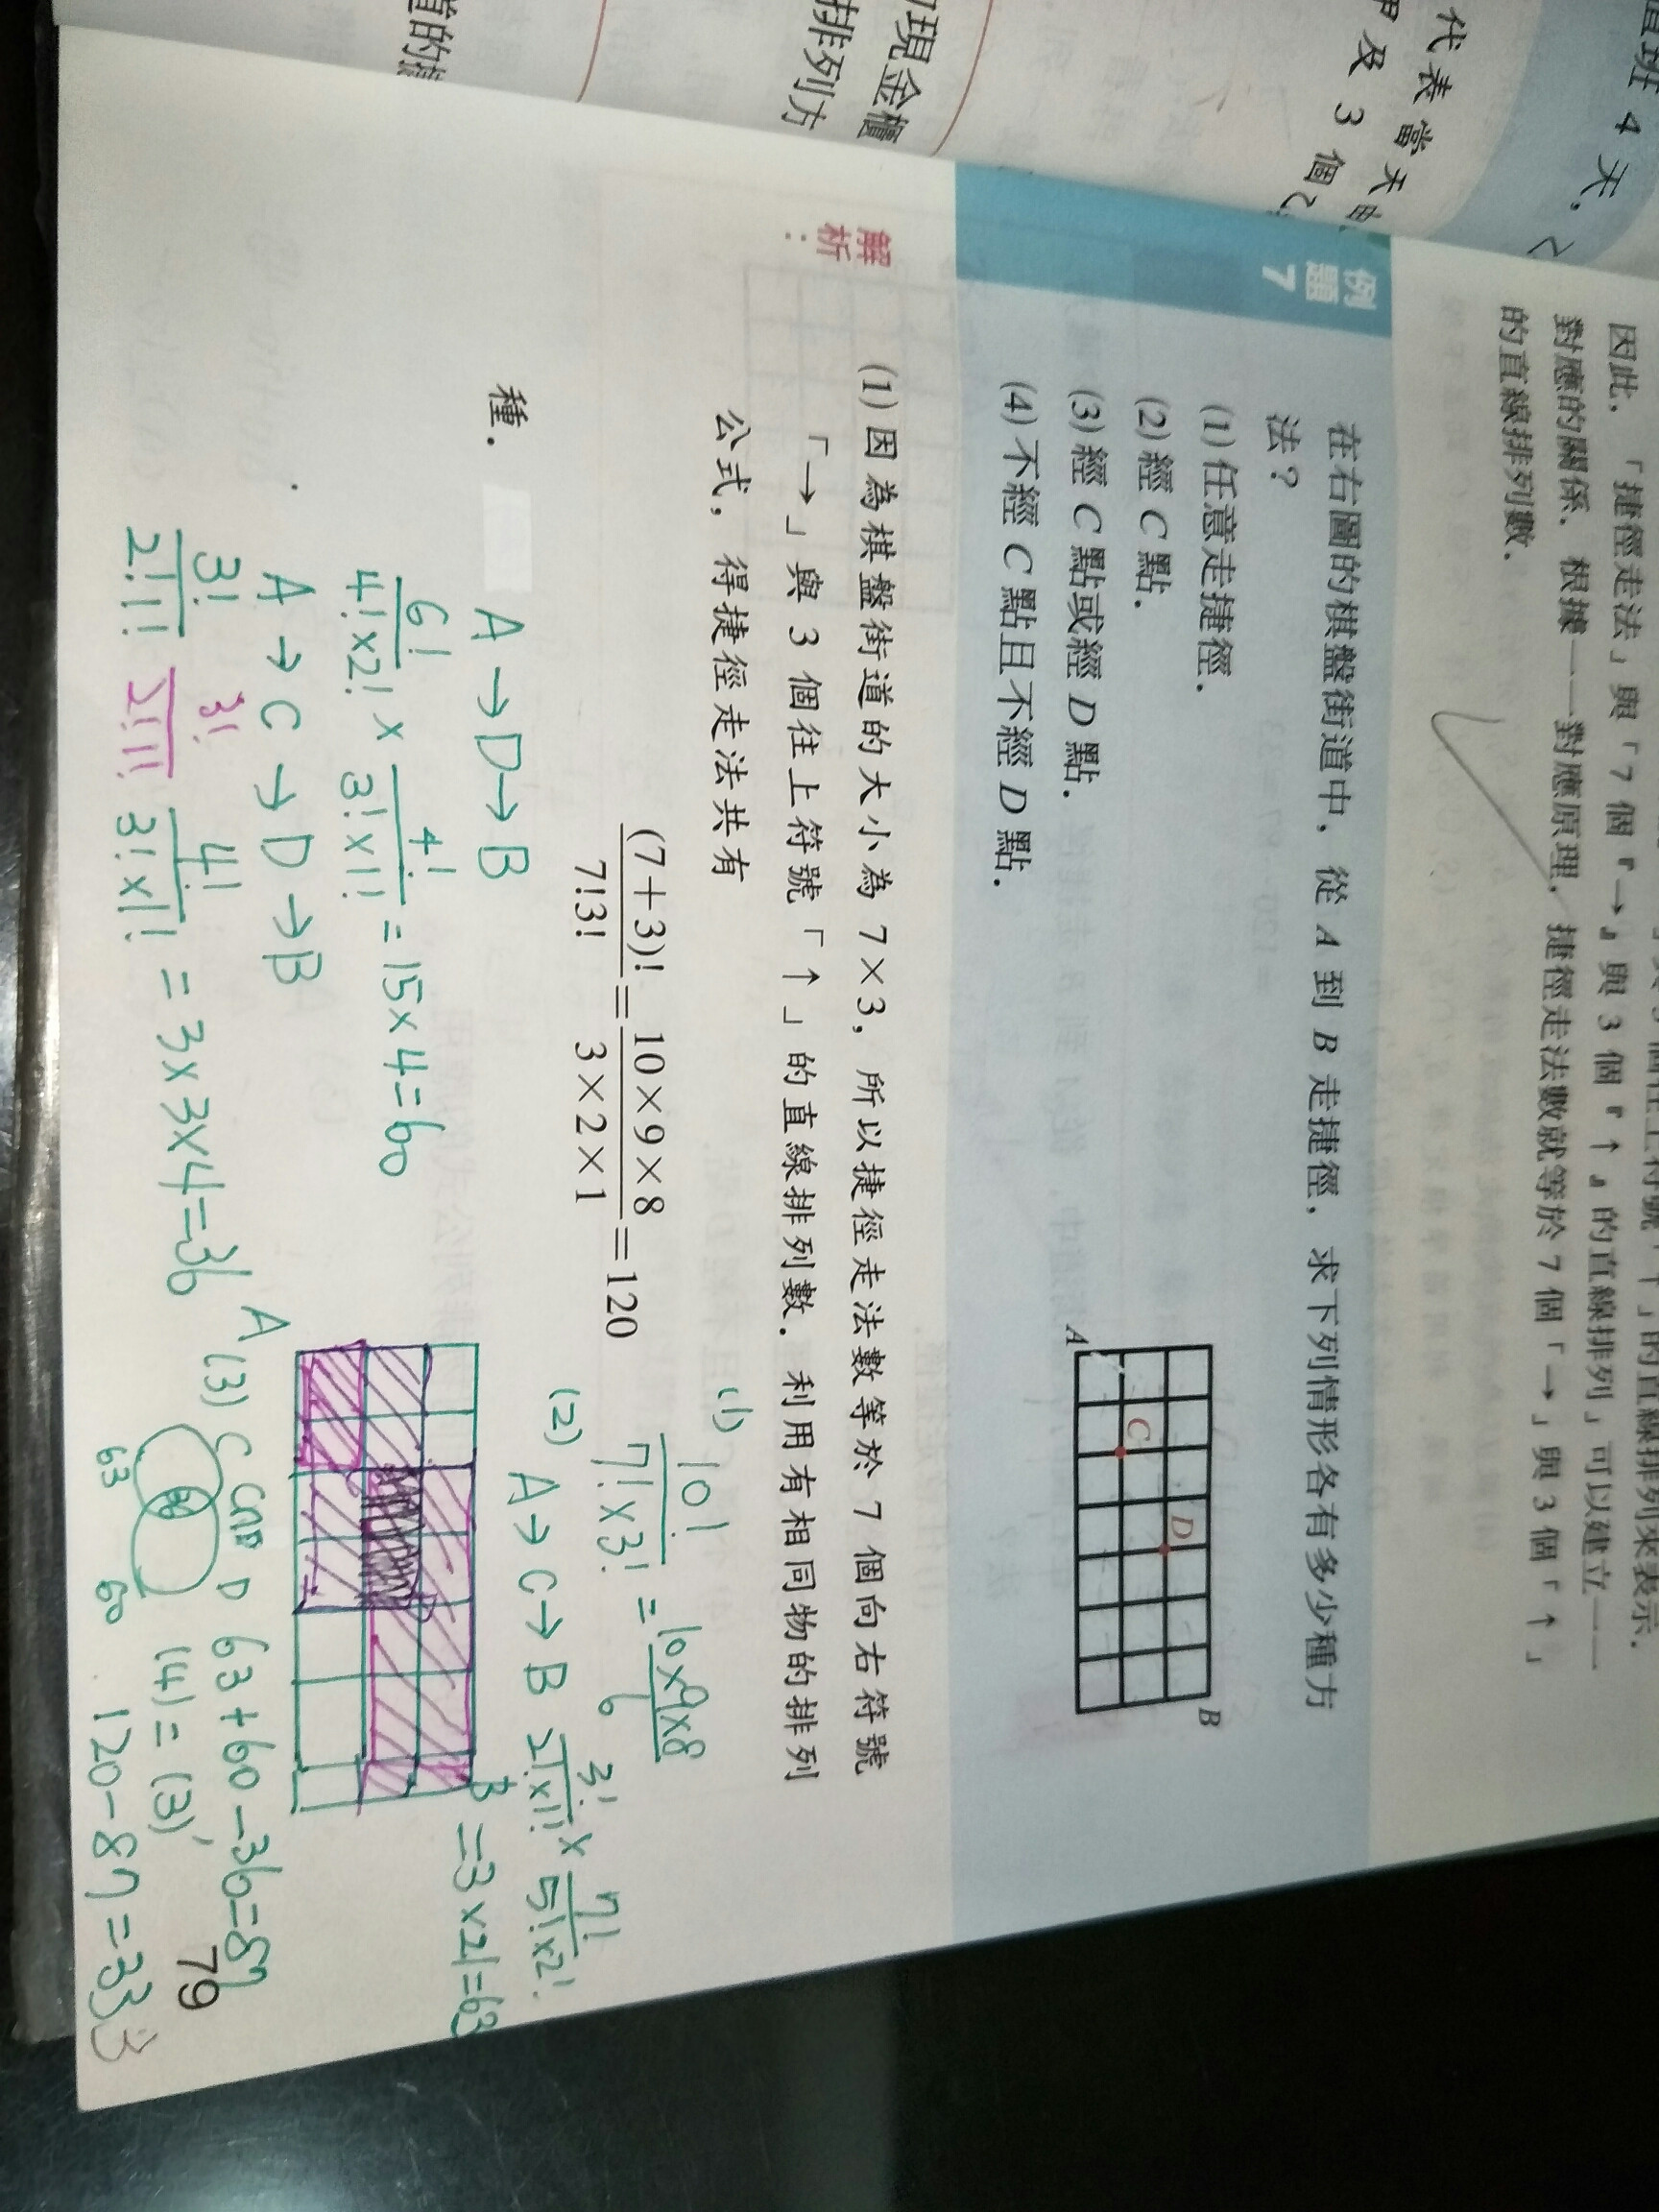 值班 4 天，
代表當天由
甲及 3 個乙
的現金櫃
排列方
因此，「捷徑走法」與「7 個『→』與 3 個『↑』的直線排列」可以建立一一
對應的關係．根據一一對應原理，捷徑走法數就等於 7 個「→」與 3 個「↑」
的直線排列數．
例題 7
在右圖的棋盤街道中，從 A 到 B 走捷徑，求下列情形各有多少種方
法？
(1) 任意走捷徑．
(2) 經 C 點．
(3) 經 C 點或經 D 點．
(4) 不經 C 點且不經 D 點．
A
C
D
B
解析：
(1) 因為棋盤街道的大小為 7×3，所以捷徑走法數等於 7 個向右符號
「→」與 3 個往上符號「↑」的直線排列數．利用有相同物的排列
公式，得捷徑走法共有
(7+3)!/7!3! = 10×9×8/3×2×1 = 120
種．
(1) 10!/7!×3! = 10×9×8/6
(2) A→C→B 3!/2!×1! × 7!/5!×2!
=3×21=63
A→D→B
6!/4!×2! × 4!/3!×1! = 15×4=60
A→C→D→B
3!/2!1! 3!/2!1! 4!/3!×1! = 3×3×4=36
A
B
(3) C C∩D D 63+60-36=87
63 60
(4)=(3)'
120-87=33
79